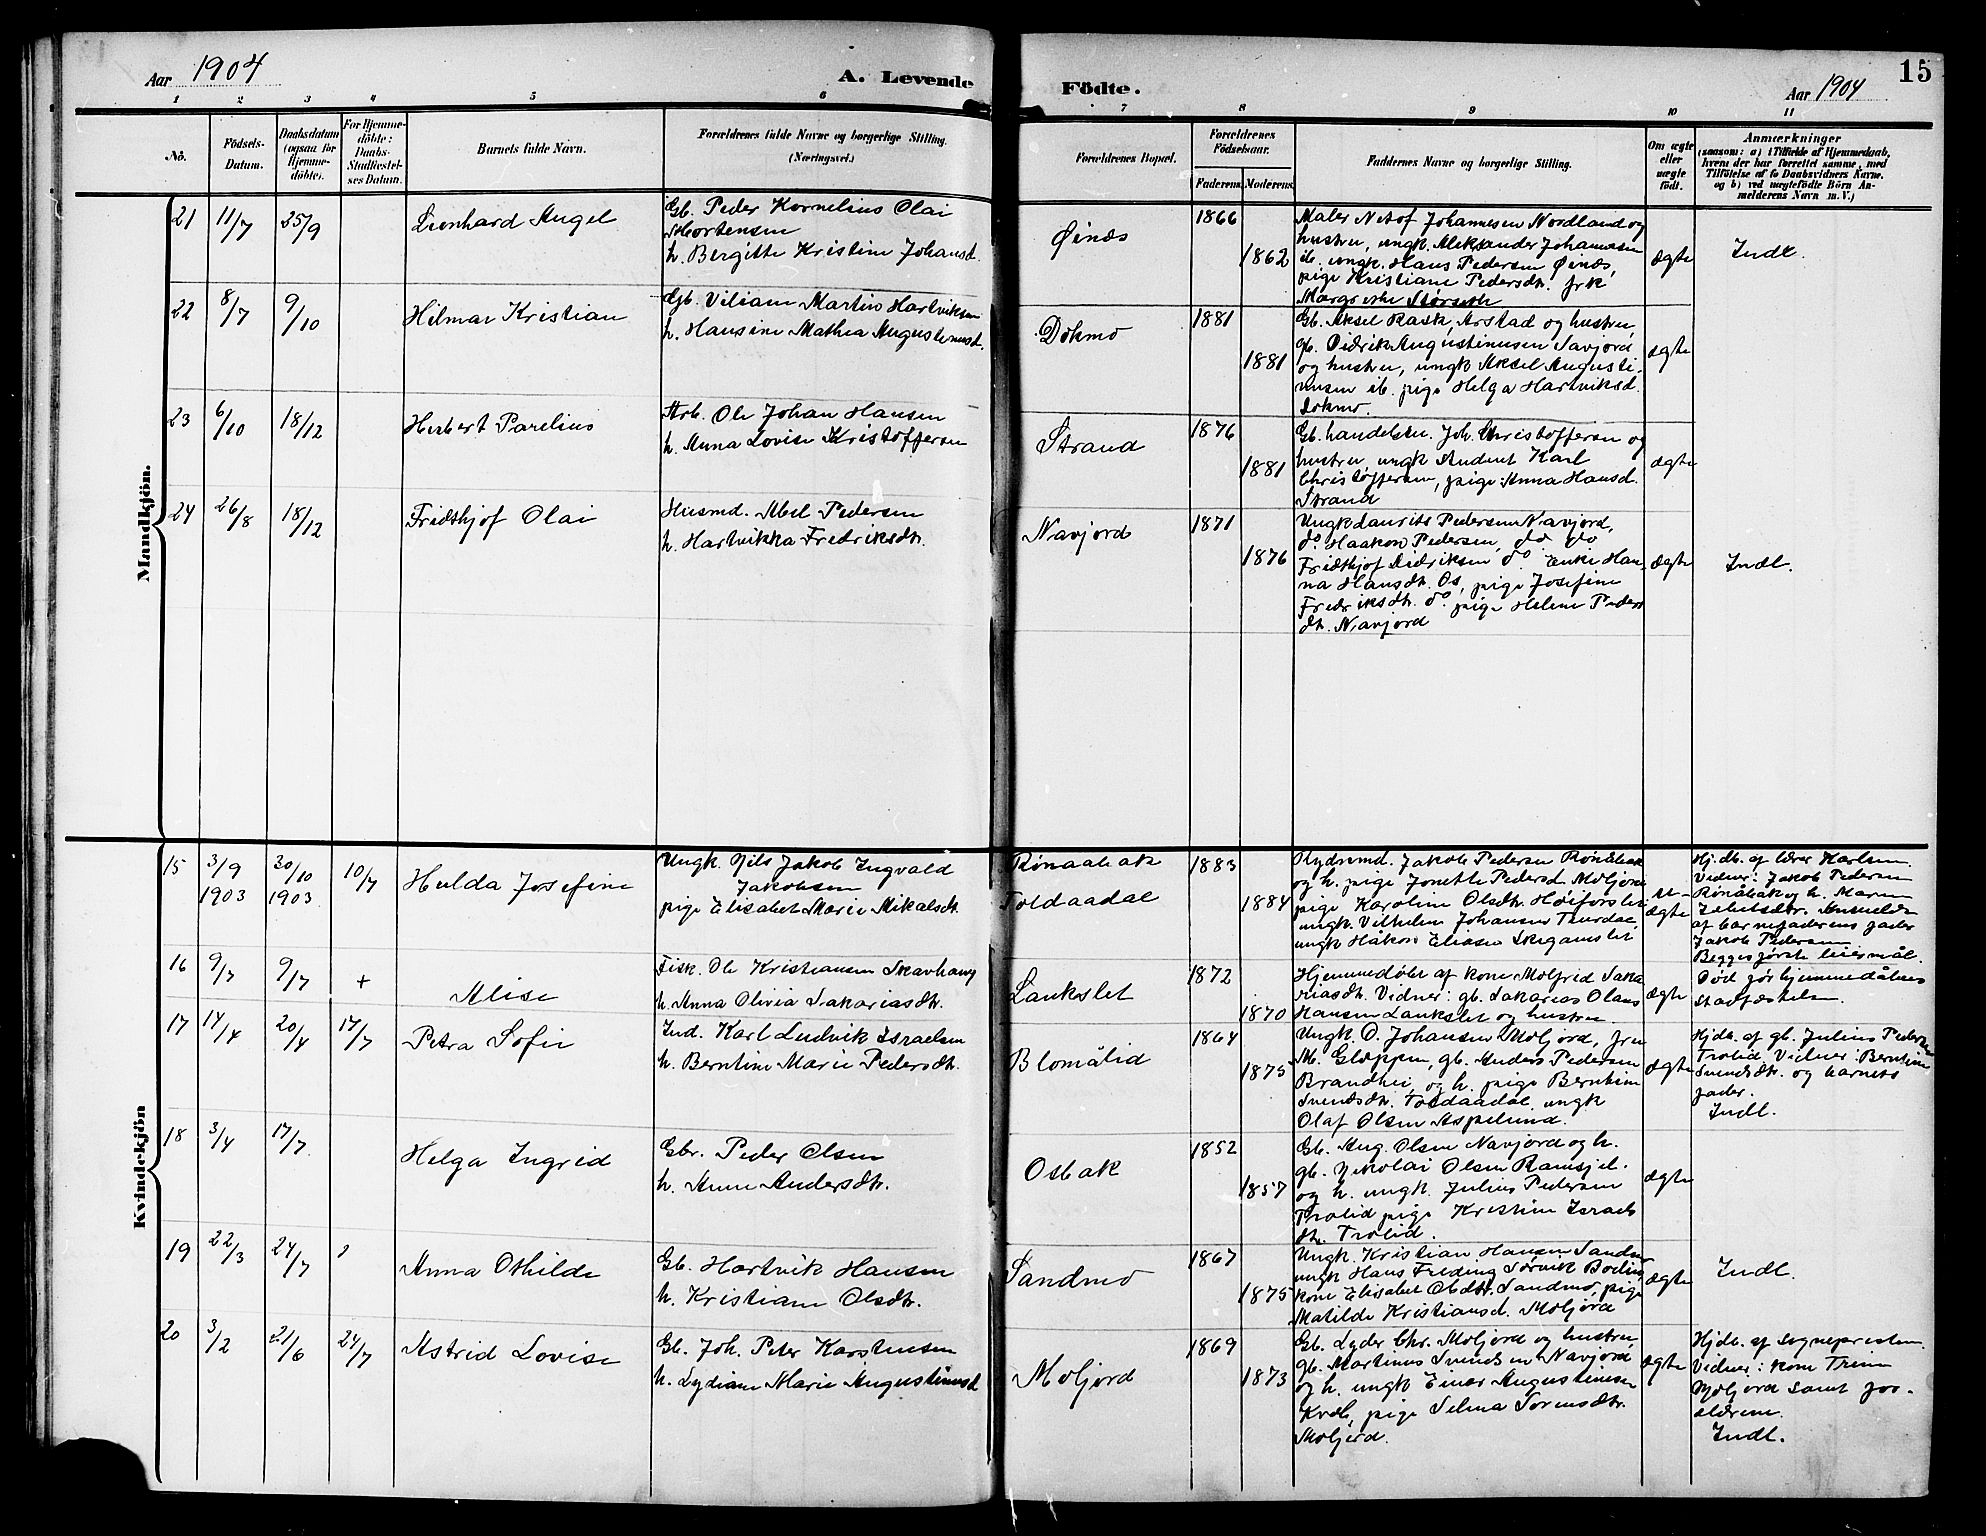 Aar 1904
A. Levende
Födte.
Aar 1904
15
1 2 3 4 5 6 7 8 9 10 11
No.
Födsels-
Datum.
Daabsdatum
(ogsaa for
Hjemme-
döbte).
For Hjemme-
döbte:
Daabs-
Stadfæstel-
ses Datum.
Barnets fulde Navn.
Forældrenes fulde Navne og borgerlige Stilling.
(Næringsvei.)
Forældrenes Bopæl.
Forældrenes
Födselsaar.
Faderens. Moderens.
Faddernes Navne og borgerlige Stilling.
Om ægte
eller
uægte
födt.
Anmærkninger
(saasom: a) i Tilfælde af Hjemmedaab,
hvem der har forrettet samme, med
Tilföielse af to Daabsvidners Navne.
og b) ved uægtefödte Börn An-
melderens Navn m. V.)
Mandkjön.
21 11/7 25/9 Leonhard Angel
Gb. Peder Kornelius Olai
Mortensen
h. Bergitte Kristine Johansd.
Øinæs
1866
1862
Maler Johannesen Nordland og
hustru, ungk. Aleksander Johannesen
ib. ungk. Hans Pedersen Øinæs,
pige Kristiane Pedersdtr. frk
Margrethe Størseth
ægte
Indl.
22 8/7 9/10 Hilmar Kristian
Gb. Viliam Martin Hartviksen
h. Hansine Mathea Augustinusd.
Dokmo
1881
1881
Gb. Aksel Rask, Arstad og hustru,
gb. Didrik Augustinusen Navjord
og hustru, ungk Aksel Augusti-
nusen ib. pige Helga Hartviksd.
Dokmo.
ægte
23 6/10 18/12 Herbert Parelius
Arb. Ole Johan Hansen
h. Anna Lovise Kristoffersen
Strand
1876
1881
Gb. handelsm. Joh. Christoffersen og
hustru, ungk Student Karl
Christoffersen, pige Anna Hansd.
Strand
ægte
24 26/8 18/12 Fridthjof Olai
Husmd. Abel Pedersen
h. Hartvikka Fredriksdtr.
Navjord
1871
1876
Ungk Laurits Pedersen Navjord,
do Haakon Pedersen, do do
Fridthjof Didriksen do. Enke Han-
na Hansdtr. Os, pige Josefine
Fredriksdtr. do. pige Helene Peders
dtr. Navjord
ægte
Indl.
Kvindekjön
15 3/9 1903 30/10 1903 10/7 Hulda Josefine
Ungk. Nils Jakob Ingvald
Jakobsen
pige Elisabet Marie Mikalsdtr.
Rønaabak
Toldaadal
1883
1884
Rydnmd. Jakob Pedersen Rønåbak
og h. pige Jonette Pedersd. Moljord
pige Karoline Olsdtr. Høiforslet
ungk. Vilhelm Johansen
ungk Håkon Eliasen
u-
ægte
Hj.db. af lærer Karlsen.
Vidner: Jakob Pedersen
Rønåbak og h. Maren
Anmeldt
af barnefaderens fader
Jakob Pedersen
Begges første leiermål.
16 9/7 9/7 + Alise
Fisk. Ole Kristiansen Skavhaug
h. Anna Olivia Sakariasdtr.
Lankslet
1872
1870
Hjemmedøbt af kone Molfrid Saka
riasdtr. Vidner: gb. Sakarias Olaus
Hansen Lankslet og hustru.
ægte
Død før hjemmedåbens
stadfæstelse.
17 14/4 20/4 17/7 Petra Sofie
Ind. Karl Ludvik Israelsen
h. Berntine Marie Pedersdtr.
Blomålid
1864
1875
Ungk. O. Johansen Moljord, fru
M. Gløppen, gb. Anders Pedersen
Brandhei, og h. pige Berntine
Svendsdtr. Toldaadal ungk
Olaf Olsen Aspelund.
ægte
Hjdb. af gb. Julius Pedersen
Trolid. Vidner: Berntine
Svendsdtr. og barnets
fader.
Indl.
18 3/4 17/7. Helga Ingrid
Gbr. Peder Olsen
h. Anne Andersdtr.
Osbak
1852
1857
Gb. Aug. Olsen Navjord og h.
gb. Nikolai Olsen Ramsjel.
og h. ungk. Julius Pedersen
Trolid pige Kristine Israels
dtr. Trolid.
ægte
19 22/3 24/7 Anna Othilde
Gb. Hartvik Hansen
h. Kristiane Olsdtr.
Sandmo
1867
1875
Ungk. Kristian Hansen Sandmo
ungk Hans Fleding Sørvik Bodin,
kone Elisabet Olsdtr. Sandmo, pige
Matilde Kristiansd. Moljord
ægte
Indl.
20 3/2 21/6 24/7 Astrid Lovise
Gb. Joh. Peter Karstensen
h. Lydiane Marie Augustinusd
Moljord
1869
1873
Gb. Lyder Chr. Moljord og hustru,
gb. Martinus Svendsen Navjord
og h. ungk Einar Augustinusen
Kvæl, pige Selma Sørensdtr.
Moljord.
ægte
Hjdb. af sognepresten.
Vidner: kone Trine
Moljord samt for-
ældrene.
Indl.